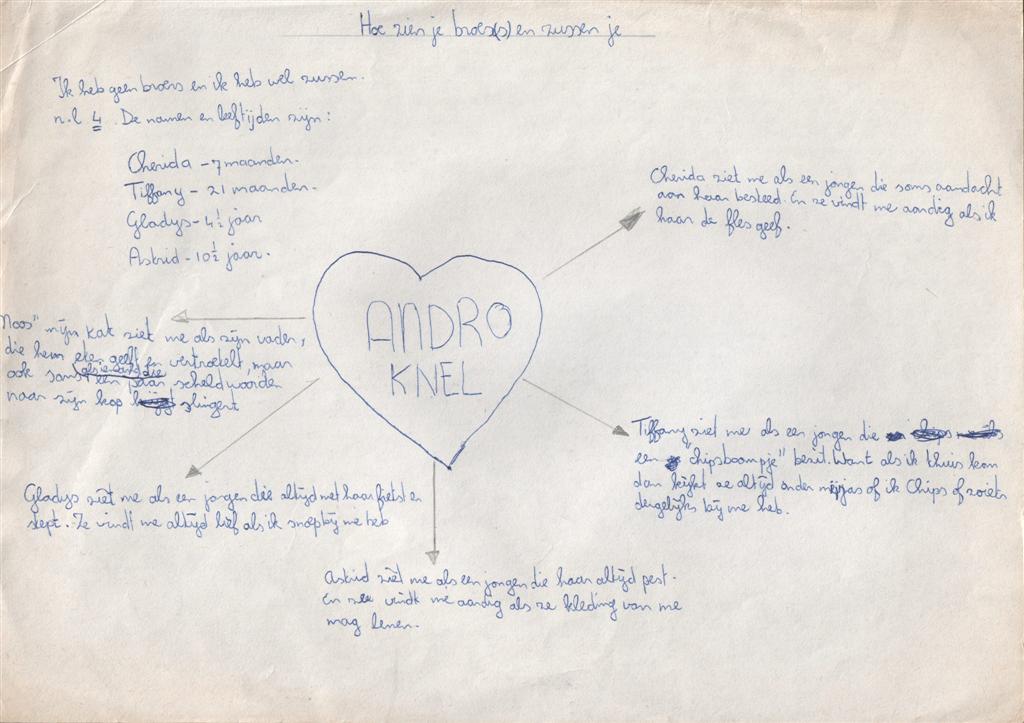 Hoe zien je broer(s) en zussen je
Ik heb geen broers en ik heb wel zussen.
n.l 4. De namen en leeftijden zijn:
Cherida - 7 maanden.
Tiffany - 21 maanden.
Gladys - 4½ jaar
Astrid - 10½ jaar.
Cherida ziet me als een jongen die soms aandacht
aan haar besteed. En ze vindt me aardig als ik
haar de fles geef.
ANDRO
KNEL
Noos" mijn kat ziet me als zijn vader,
die hem eten geeft en vertroetelt, maar
ook soms een paar scheldwoorden
naar zijn kop slingert
Tiffany ziet me als een jongen die
een "chipsboompje" bezit. Want als ik thuis kom
dan kijkt ze altijd onder mijn jas of ik Chips of zoiets
dergelijks bij me heb.
Gladys ziet me als een jongen die altijd met haar fietst en
stept. Ze vindt me altijd lief als ik snoep bij me heb
Astrid ziet me als een jongen die haar altijd pest.
En ze vindt me aardig als ze kleding van me
mag lenen.